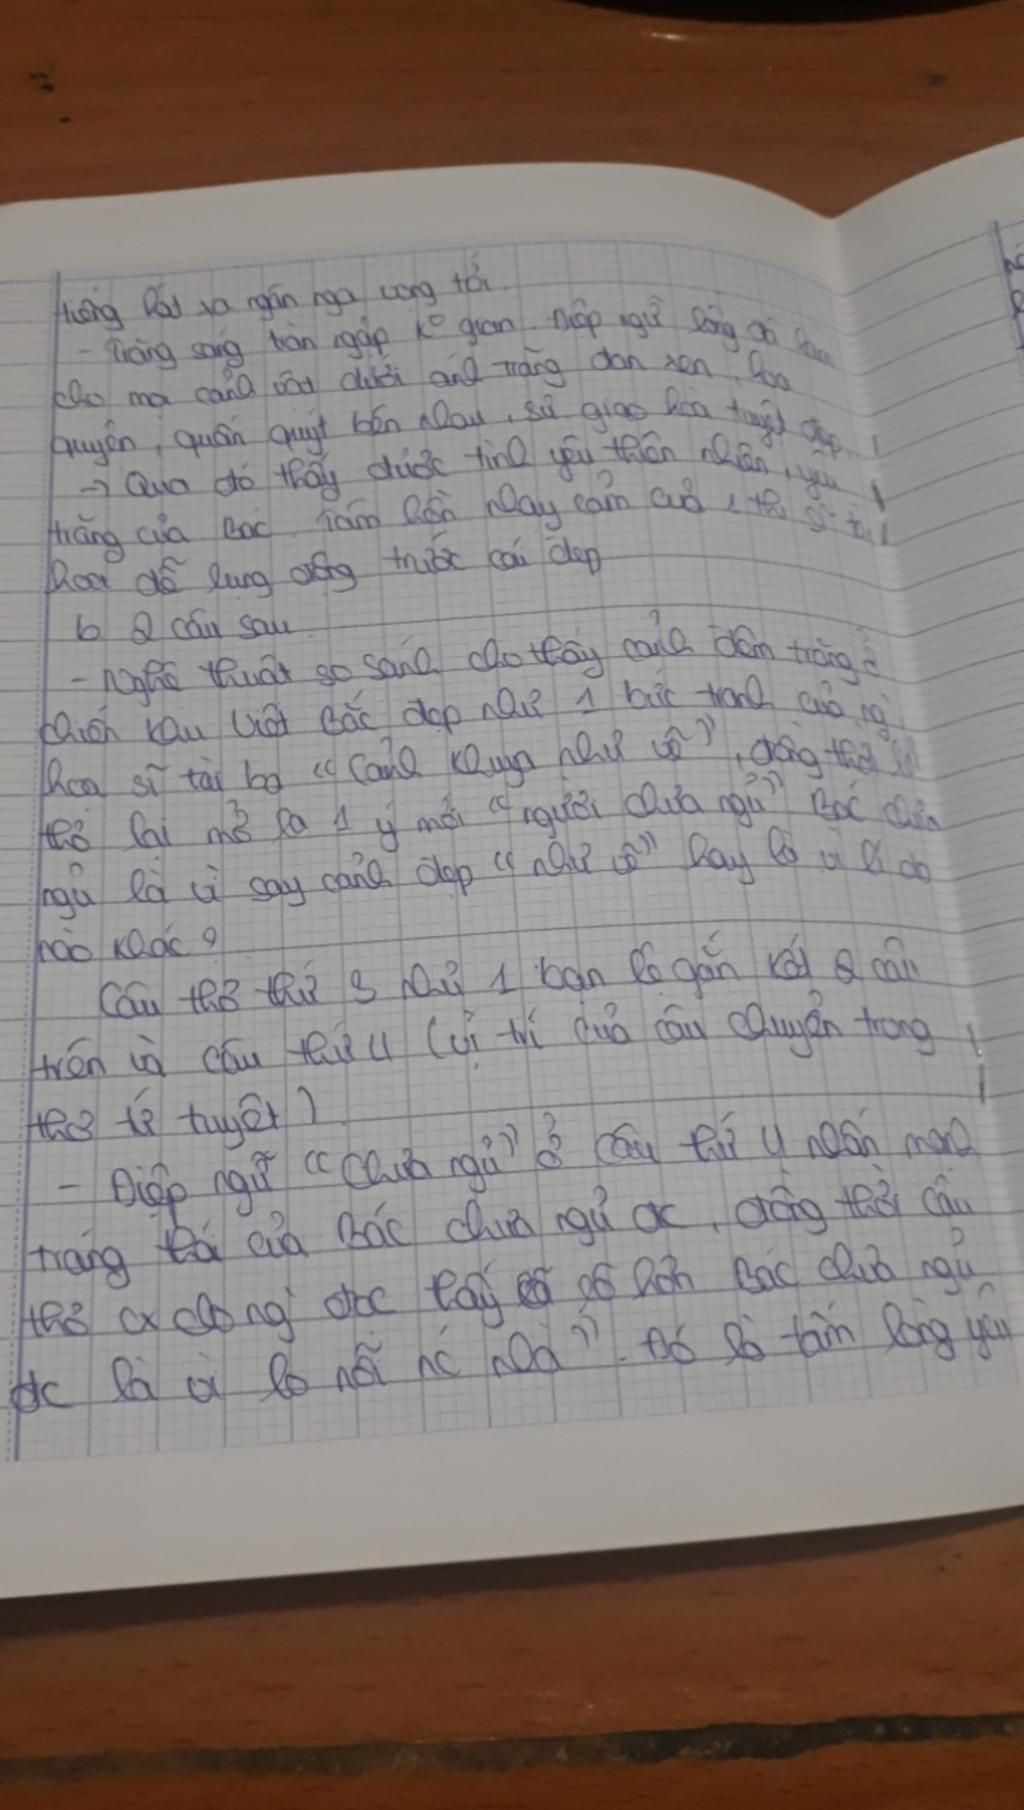 tiếng hát xa ngân nga vọng tới
- Trăng sáng tràn ngập kº gian. Điệp ngữ lồng đã làm
cho mọi cảnh vật dưới ánh trăng đan xen, hòa
quyện, quấn quýt bên nhau, sự giao hòa tuyệt đẹp.
-> Qua đó thấy được tình yêu thiên nhiên, yêu
trăng của Bác. Tâm hồn nhạy cảm của 1 thi sĩ tài
hoa dễ rung động trước cái đẹp
b 2 câu sau
- Nghệ thuật so sánh cho thấy cảnh đêm trăng ở
chiến khu Việt Bắc đẹp như 1 bức tranh của
họa sĩ tài ba "Cảnh khuya như vẽ", đồng thời
thơ lại mở ra 1 ý mới "người chưa ngủ" Bác chưa
ngủ là vì say cảnh đẹp "như vẽ" hay là vì lí do
nào khác ?
Câu thơ thứ 3 như 1 bản lề gắn kết 2 câu
trên và câu thứ 4 (vị trí của câu chuyển trong
thơ tứ tuyệt)
- Điệp ngữ "Chưa ngủ" ở câu thứ 4 nhấn mạnh
trạng thái của Bác chưa ngủ đc, đồng thời câu
thơ cx cho ng đọc thấy rõ hơn Bác chưa ngủ
đc là vì lo nỗi nc nhà". Đó là tấm lòng yêu